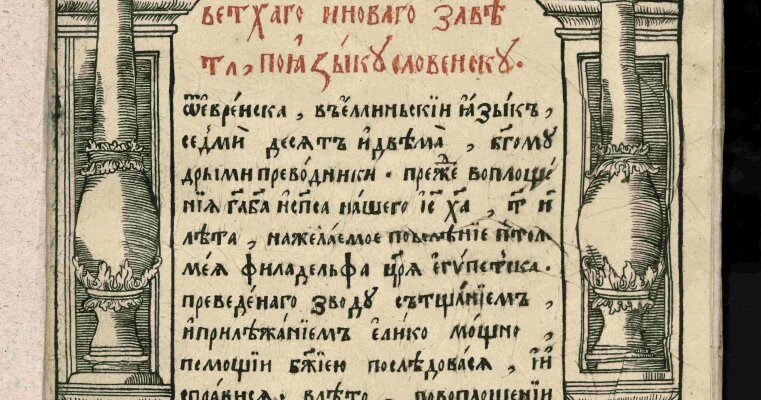 ветхаго иноваго завѣ
та, поꙗзыку словенску.
ѿевре́йска, въе́ллиньскїи ꙗ҆зыкъ,
седмиⷨ десѧтъ идвѣма̀, бг҃ому
дрыми преводники. преⷤже воплоще́
нїѧ гⷭ҇а бг҃а ист҃са нашего і҆с҃ х҃а, т҃ и҃
лѣта, нажела́емое повелѣнїе птоло
ме́ѧ филаде́льфа цр҃ѧ є҆гу́петска.
преведе́наго зводу сътщанїемъ,
и҆прилѣжа́нїемъ є҆лико мощно,
помощїи бж҃їею послѣдовасѧ, ї҆и҆
справисѧ. влѣто, повоплощенїи